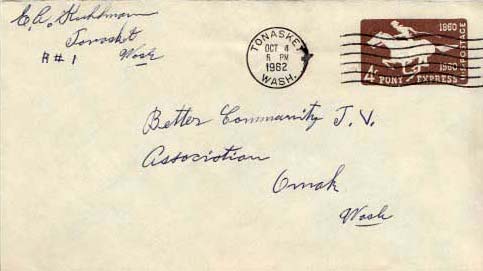 E.A.
Tonasket
R#1 Wash
TONASKET
OCT 4
5 PM
1962
WASH.
1860
1960
U.S. POSTAGE
4¢ PONY EXPRESS
Better Community T.V.
Association
Omak
Wash